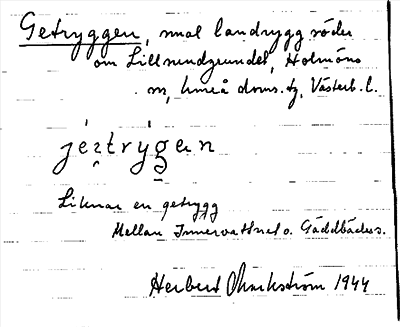 Getryggen, smal landrygg söder
om Lillsundgrundet, Holmöns
sn, Umeå doms. tg, Västerb. l.
jéztrýgen
Liknar en getrygg
Mellan Innervattnet o. Gäddbäcken.
Herbert Markström 1944